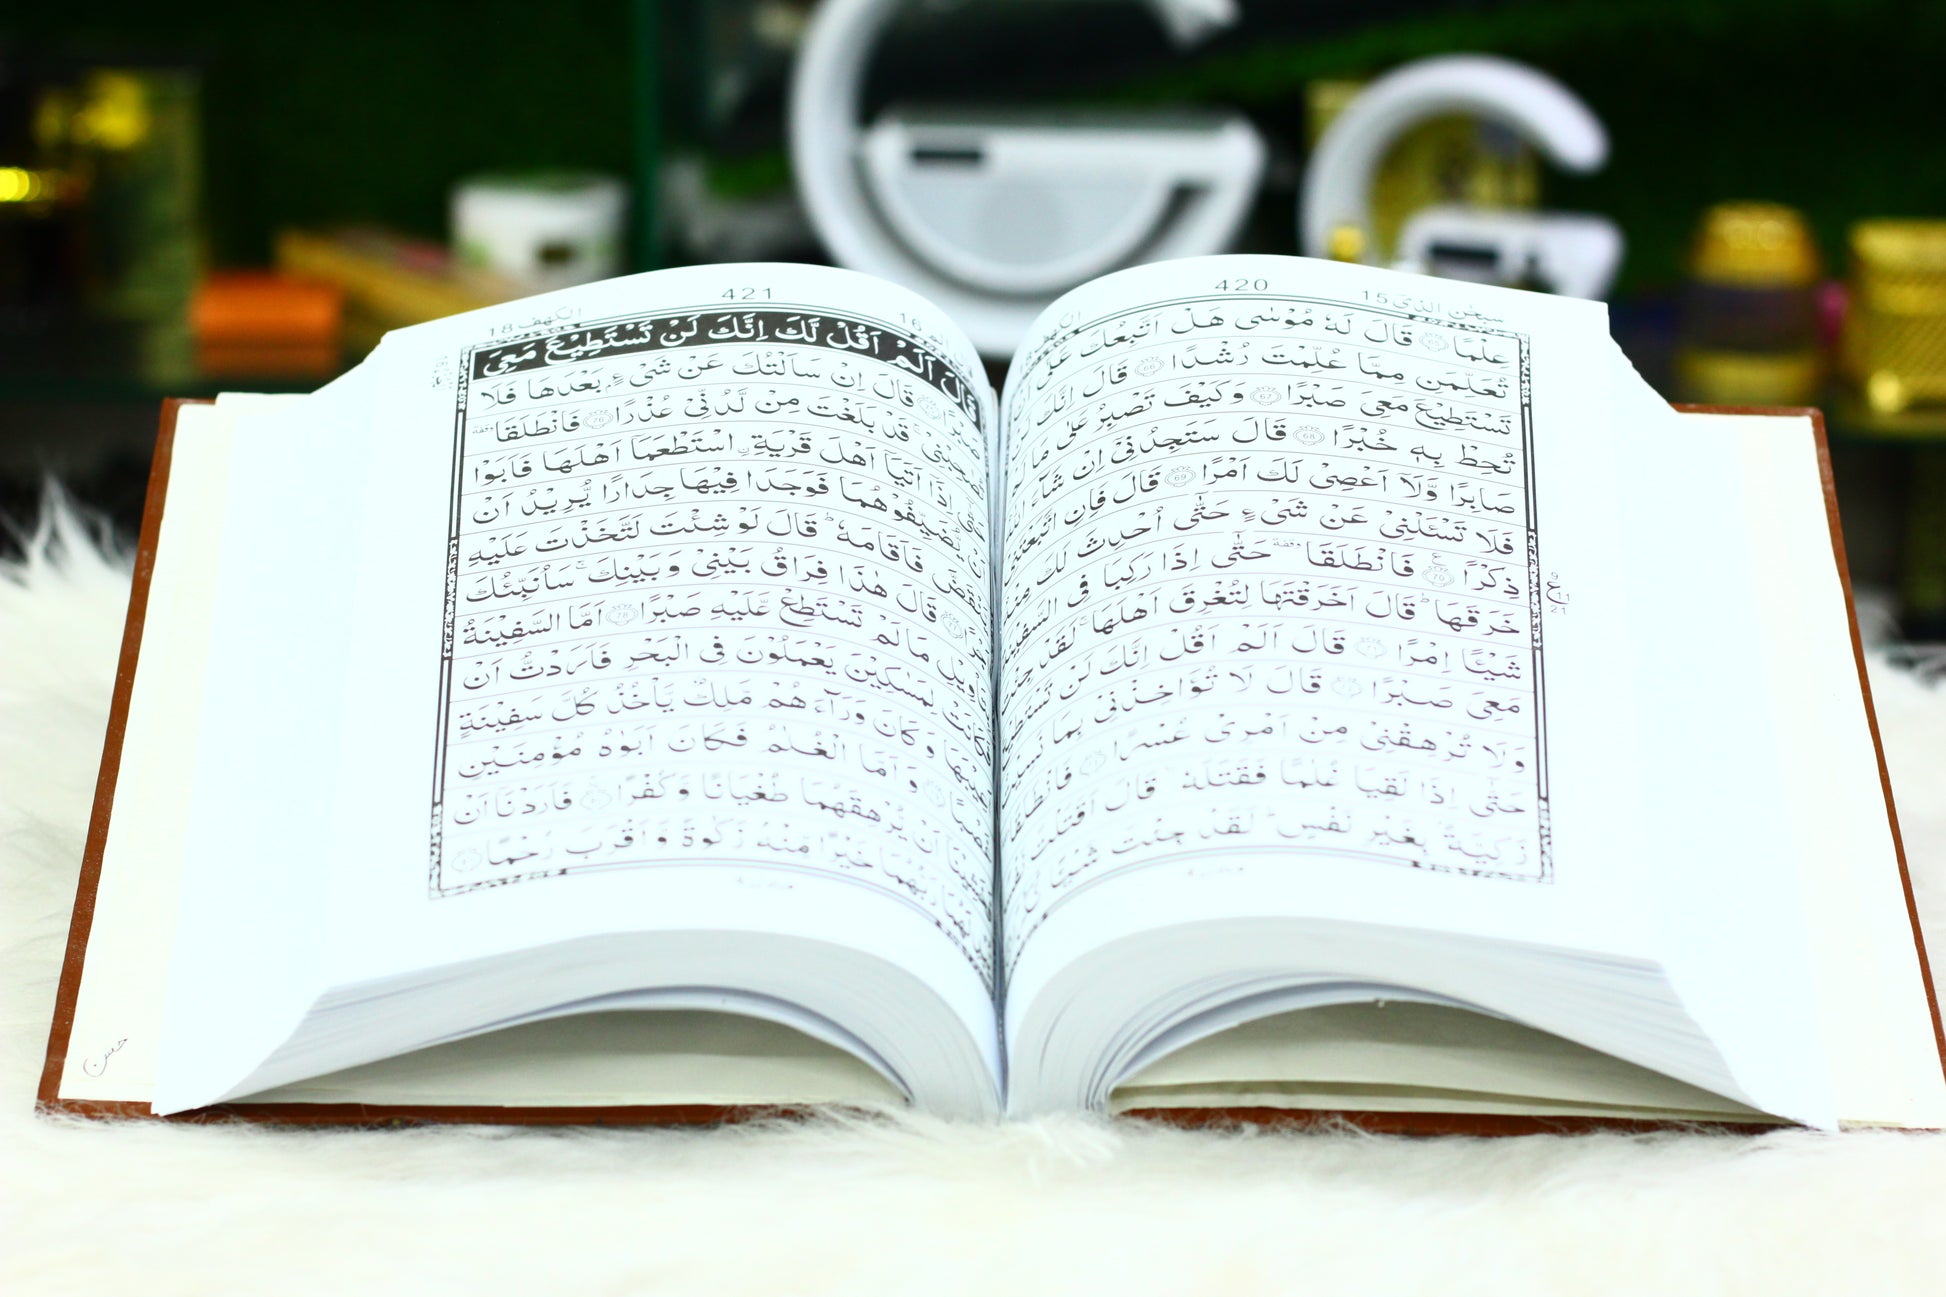 سبحٰن الذی 15
420
الکهف
عِلْمًا قَالَ لَهٗ مُوْسٰى هَلْ اَتَّبِعُكَ عَلٰٓى اَنْ
تُعَلِّمَنِ مِمَّا عُلِّمْتَ رُشْدًا 66 قَالَ اِنَّكَ لَنْ
تَسْتَطِيْعَ مَعِيَ صَبْرًا 67 وَكَيْفَ تَصْبِرُ عَلٰى مَا لَمْ
تُحِطْ بِهٖ خُبْرًا 68 قَالَ سَتَجِدُنِيْٓ اِنْ شَآءَ
صَابِرًا وَّلَآ اَعْصِيْ لَكَ اَمْرًا 69 قَالَ فَاِنِ اتَّبَعْتَنِيْ
فَلَا تَسْـَٔلْنِيْ عَنْ شَيْءٍ حَتّٰٓى اُحْدِثَ لَكَ مِنْهُ
ذِكْرًا 70 فَانْطَلَقَا وقفة حَتّٰٓى اِذَا رَكِبَا فِي السَّفِيْنَةِ
خَرَقَهَا قَالَ اَخَرَقْتَهَا لِتُغْرِقَ اَهْلَهَا لَقَدْ جِئْتَ
شَيْـًٔا اِمْرًا 71 قَالَ اَلَمْ اَقُلْ اِنَّكَ لَنْ تَسْتَطِيْعَ
مَعِيَ صَبْرًا قَالَ لَا تُؤَاخِذْنِيْ بِمَا نَسِيْتُ
وَلَا تُرْهِقْنِيْ مِنْ اَمْرِيْ عُسْرًا فَانْطَلَقَا
حَتّٰٓى اِذَا لَقِيَا غُلٰمًا فَقَتَلَهٗ قَالَ اَقَتَلْتَ
زَكِيَّةً بِغَيْرِ نَفْسٍ لَقَدْ جِئْتَ شَيْـًٔا
ع
21
16
421
الکهف 18
قَالَ اَلَمْ اَقُلْ لَّكَ اِنَّكَ لَنْ تَسْتَطِيْعَ مَعِيَ
صَبْرًا قَالَ اِنْ سَاَلْتُكَ عَنْ شَيْءٍ بَعْدَهَا فَلَا
تُصٰحِبْنِيْ قَدْ بَلَغْتَ مِنْ لَّدُنِّيْ عُذْرًا 76 فَانْطَلَقَا وقفة
حَتّٰٓى اِذَآ اَتَيَآ اَهْلَ قَرْيَةِ اسْتَطْعَمَآ اَهْلَهَا فَاَبَوْا
اَنْ يُّضَيِّفُوْهُمَا فَوَجَدَا فِيْهَا جِدَارًا يُّرِيْدُ اَنْ
يَّنْقَضَّ فَاَقَامَهٗ قَالَ لَوْ شِئْتَ لَتَّخَذْتَ عَلَيْهِ
اَجْرًا قَالَ هٰذَا فِرَاقُ بَيْنِيْ وَبَيْنِكَ سَاُنَبِّئُكَ
بِتَاْوِيْلِ مَا لَمْ تَسْتَطِعْ عَّلَيْهِ صَبْرًا 78 اَمَّا السَّفِيْنَةُ
فَكَانَتْ لِمَسٰكِيْنَ يَعْمَلُوْنَ فِي الْبَحْرِ فَاَرَدْتُّ اَنْ
اَعِيْبَهَا وَكَانَ وَرَآءَهُمْ مَّلِكٌ يَّاْخُذُ كُلَّ سَفِيْنَةٍ
غَصْبًا وَاَمَّا الْغُلٰمُ فَكَانَ اَبَوٰهُ مُؤْمِنَيْنِ
فَخَشِيْنَآ اَنْ يُّرْهِقَهُمَا طُغْيَانًا وَّكُفْرًا فَاَرَدْنَآ اَنْ
رَبُّهُمَا خَيْرًا مِّنْهُ زَكٰوةً وَّاَقْرَبَ رُحْمًا
حسن